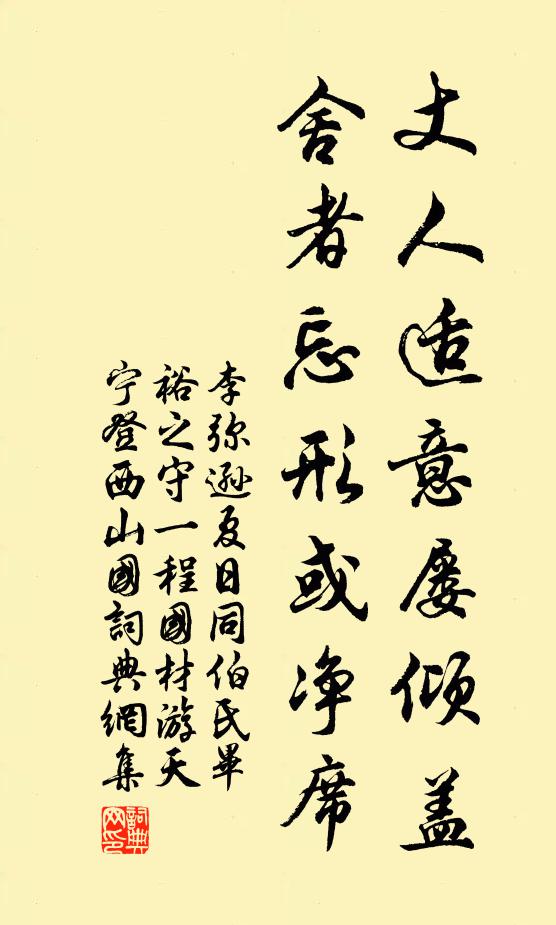 丈人适意屡倾盖
舍者忘形或净席
李弥逊夏日同伯氏畢
裕之守一程國材游天
宁登西山國詞典網集
詞典
网印